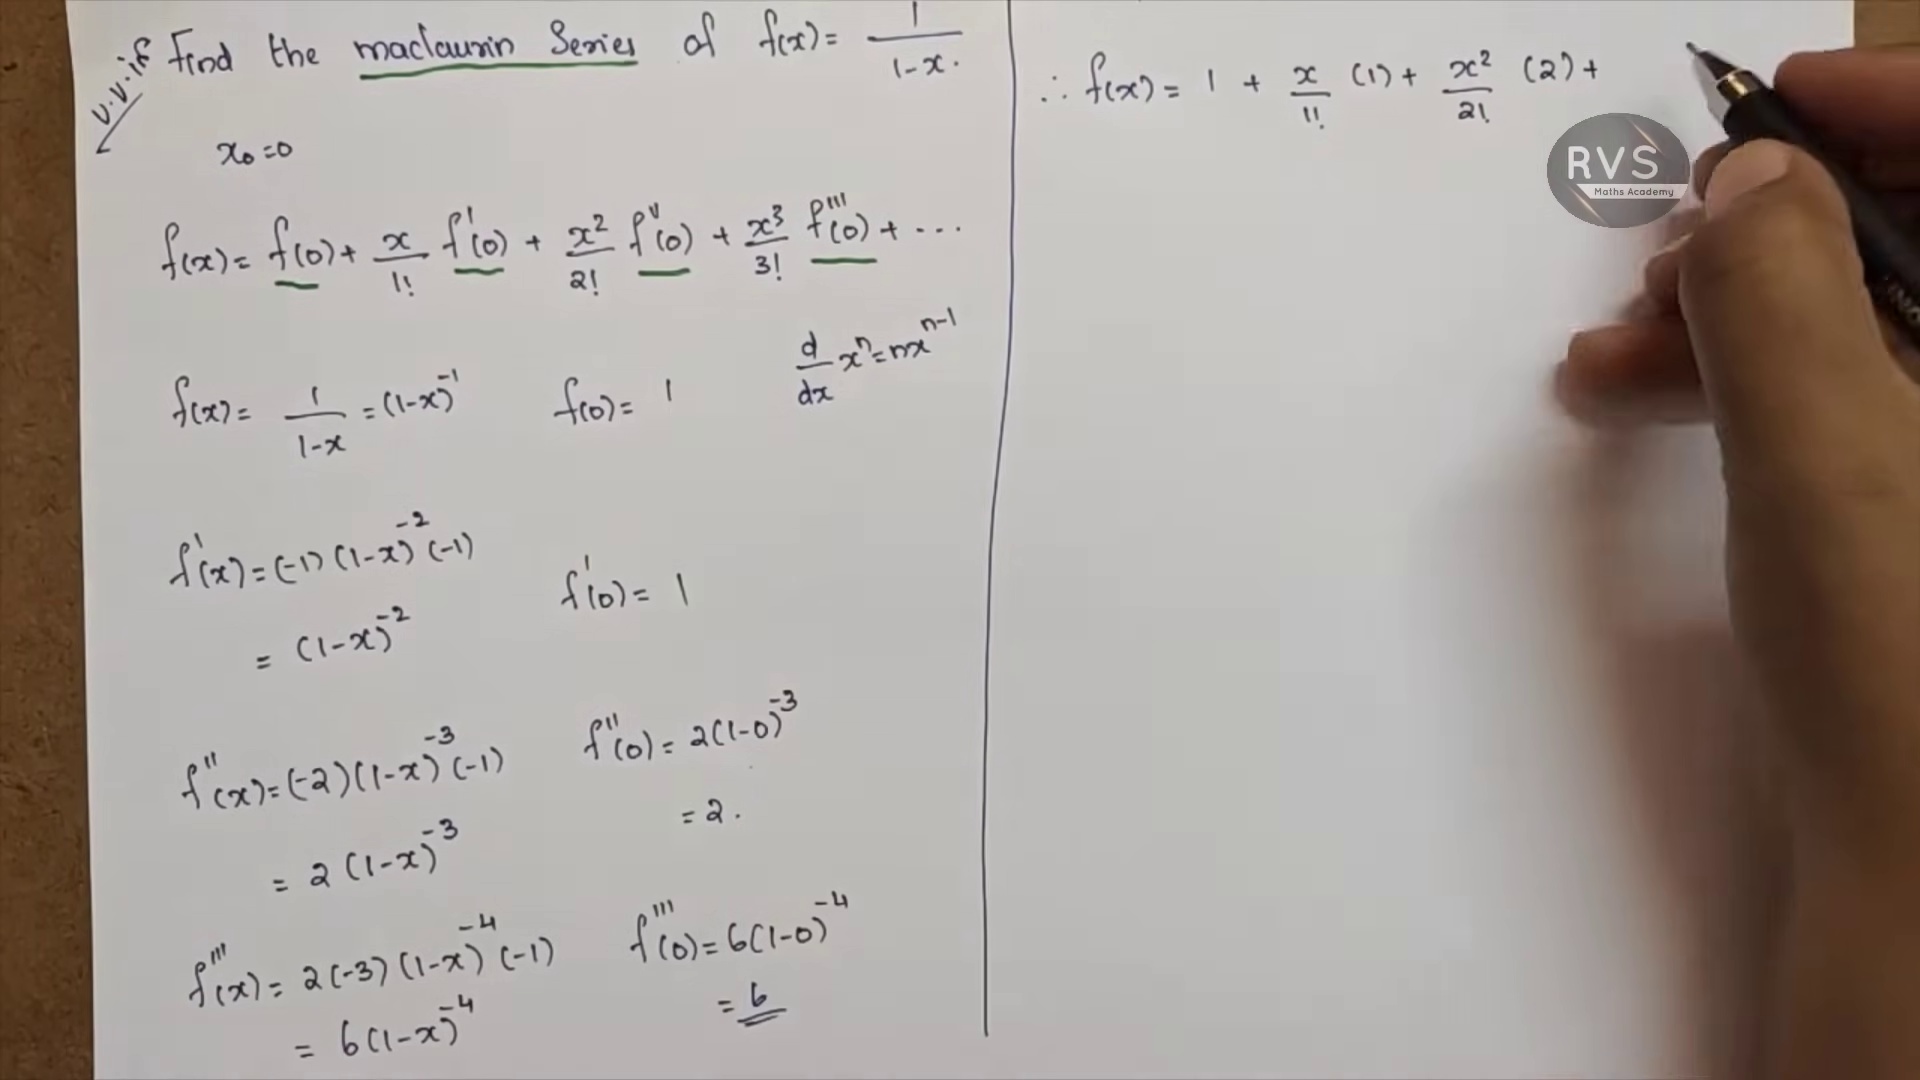 v.v.if
Find the maclaurin Series of f(x) = 1/1-x.
x₀=0
f(x) = f(0) + x/1! f'(0) + x²/2! f''(0) + x³/3! f'''(0) + ...
d/dx xⁿ = nxⁿ⁻¹
f(x) = 1/1-x = (1-x)⁻¹ f(0) = 1
f'(x) = (-1) (1-x)⁻² (-1)
= (1-x)⁻² f'(0) = 1
f''(x) = (-2) (1-x)⁻³ (-1) f''(0) = 2(1-0)⁻³
= 2 (1-x)⁻³ = 2.
f'''(x) = 2(-3) (1-x)⁻⁴ (-1) f'''(0) = 6(1-0)⁻⁴
= 6(1-x)⁻⁴ = 6
∴ f(x) = 1 + x/1! (1) + x²/2! (2) +
RVS
Maths Academy